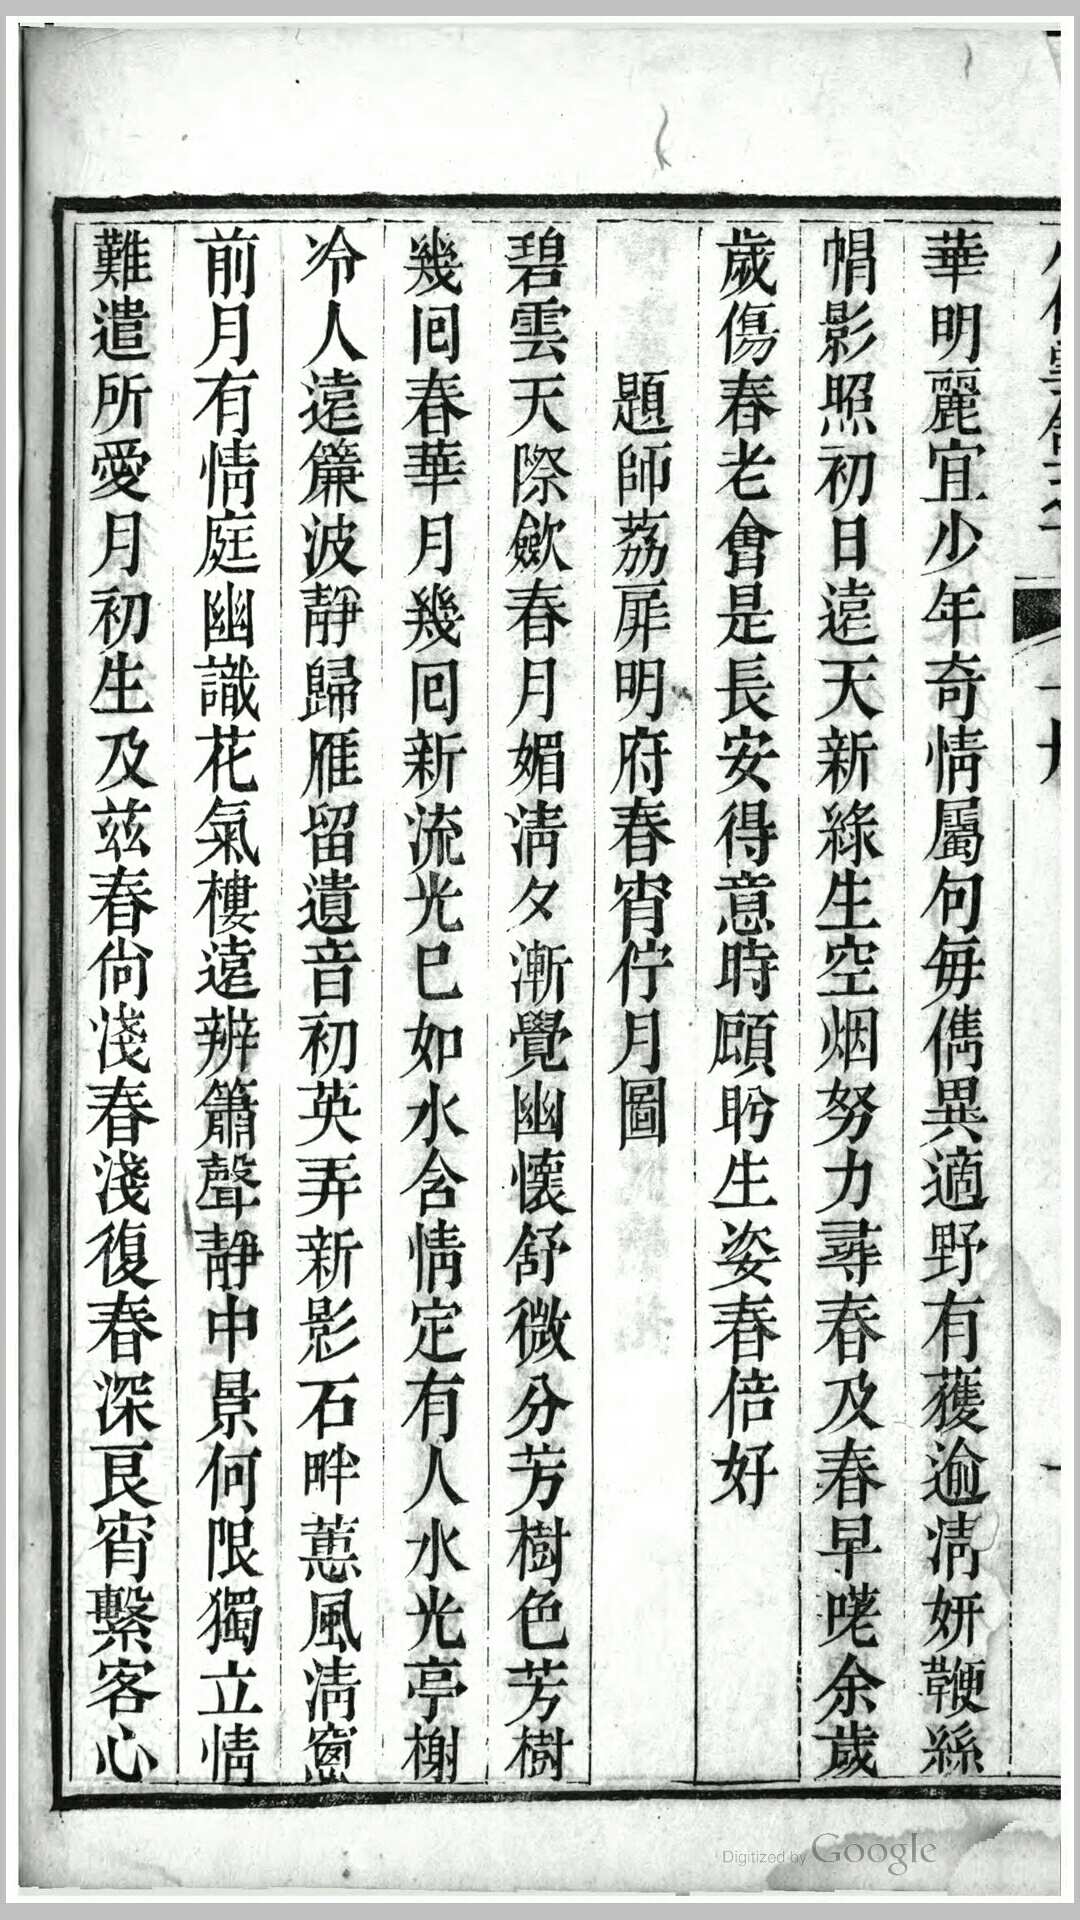 華明麗宜少年奇情屬句每儁異適野有蒦逾淸妍鞭絲
帩影照初日遠天新綠生空烟努力尋春及春早嗟余歲
歲傷春老會是長安得意時頋盻生姿春倍好
題師荔扉明府春宵佇月圖
碧雲天際歛春月媚淸夕漸覺幽懷舒微分芳樹色芳樹
幾囘春華月幾囘新流光巳如水含情定有人水光亭榭
冷人遠簾波靜歸雁留遺音初英弄新影石畔蕙風淸窻
前月有情庭幽識花氣樓遠辨簫聲靜中景何限獨立情
難遣所愛月初生及兹春尙淺春淺復春深艮宵繫客心
Digitized by Google